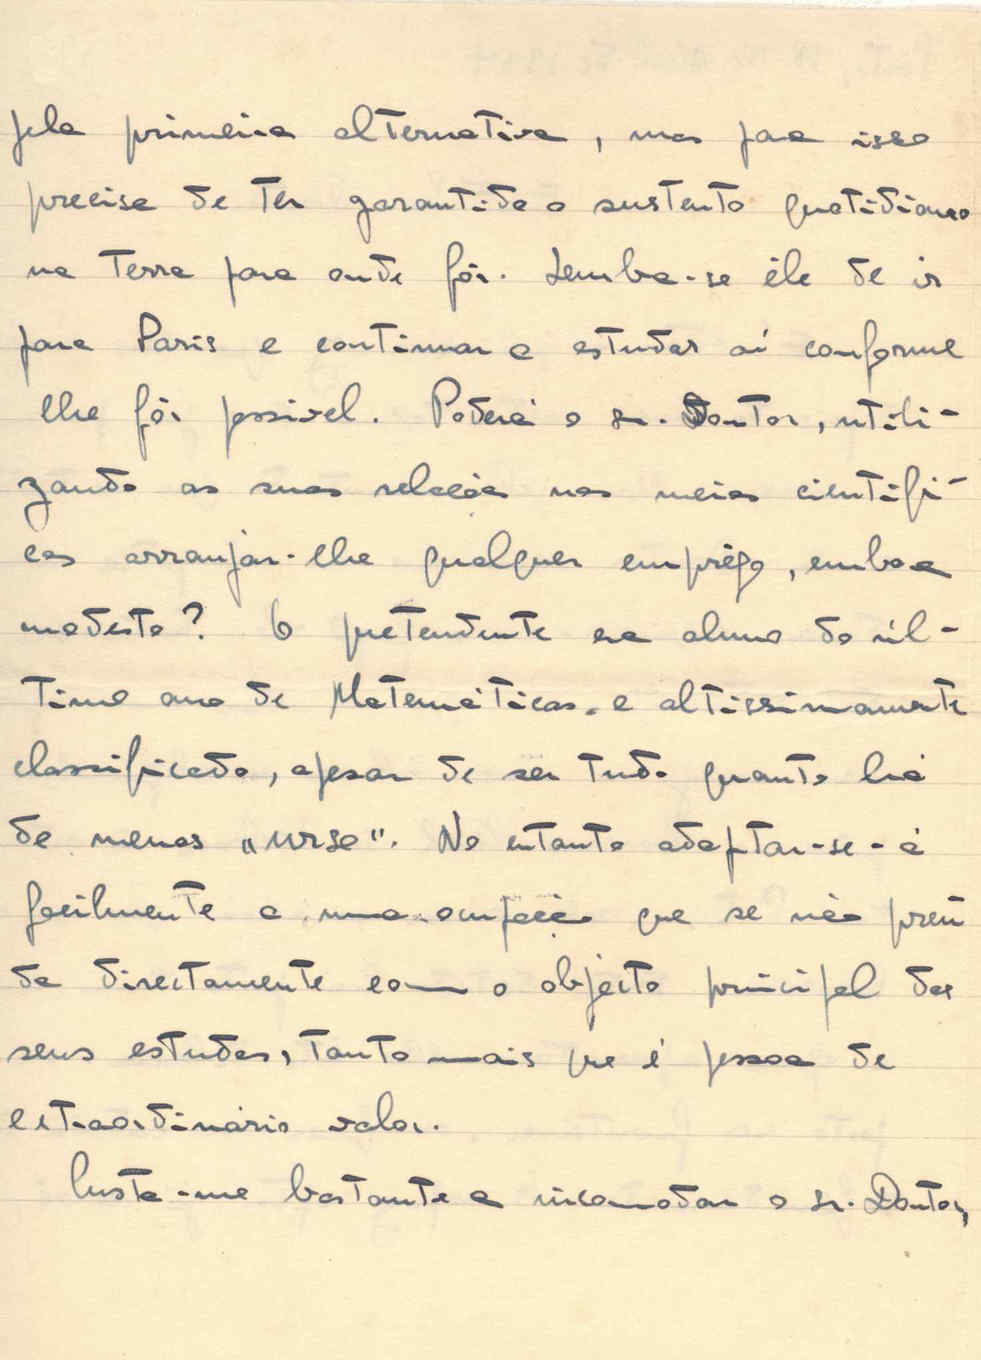 pela primeira alternativa, mas para isso
precisa de ter garantido o sustento quotidiano
na terra para onde fôr. Lembra-se êle de ir
para Paris e continuar a estudar aí conforme
lhe fôr possível. Poderá o sr. Doutor, utili-
zando as suas relações nos meios científi-
cos arranjar-lhe qualquer emprêgo, embora
modesto? O pretendente era aluno do úl-
timo ano de Matemáticas, e altissimamente
classificado, apesar de ser tudo quanto há
de menos "urso". No entanto adaptar-se-á
facilmente a uma ocupação que se não pren
da directamente com o objecto principal dos
seus estudos, tanto mais que é pessoa de
extraordinário valor.
Custa-me bastante a incomodar o sr. Doutor,